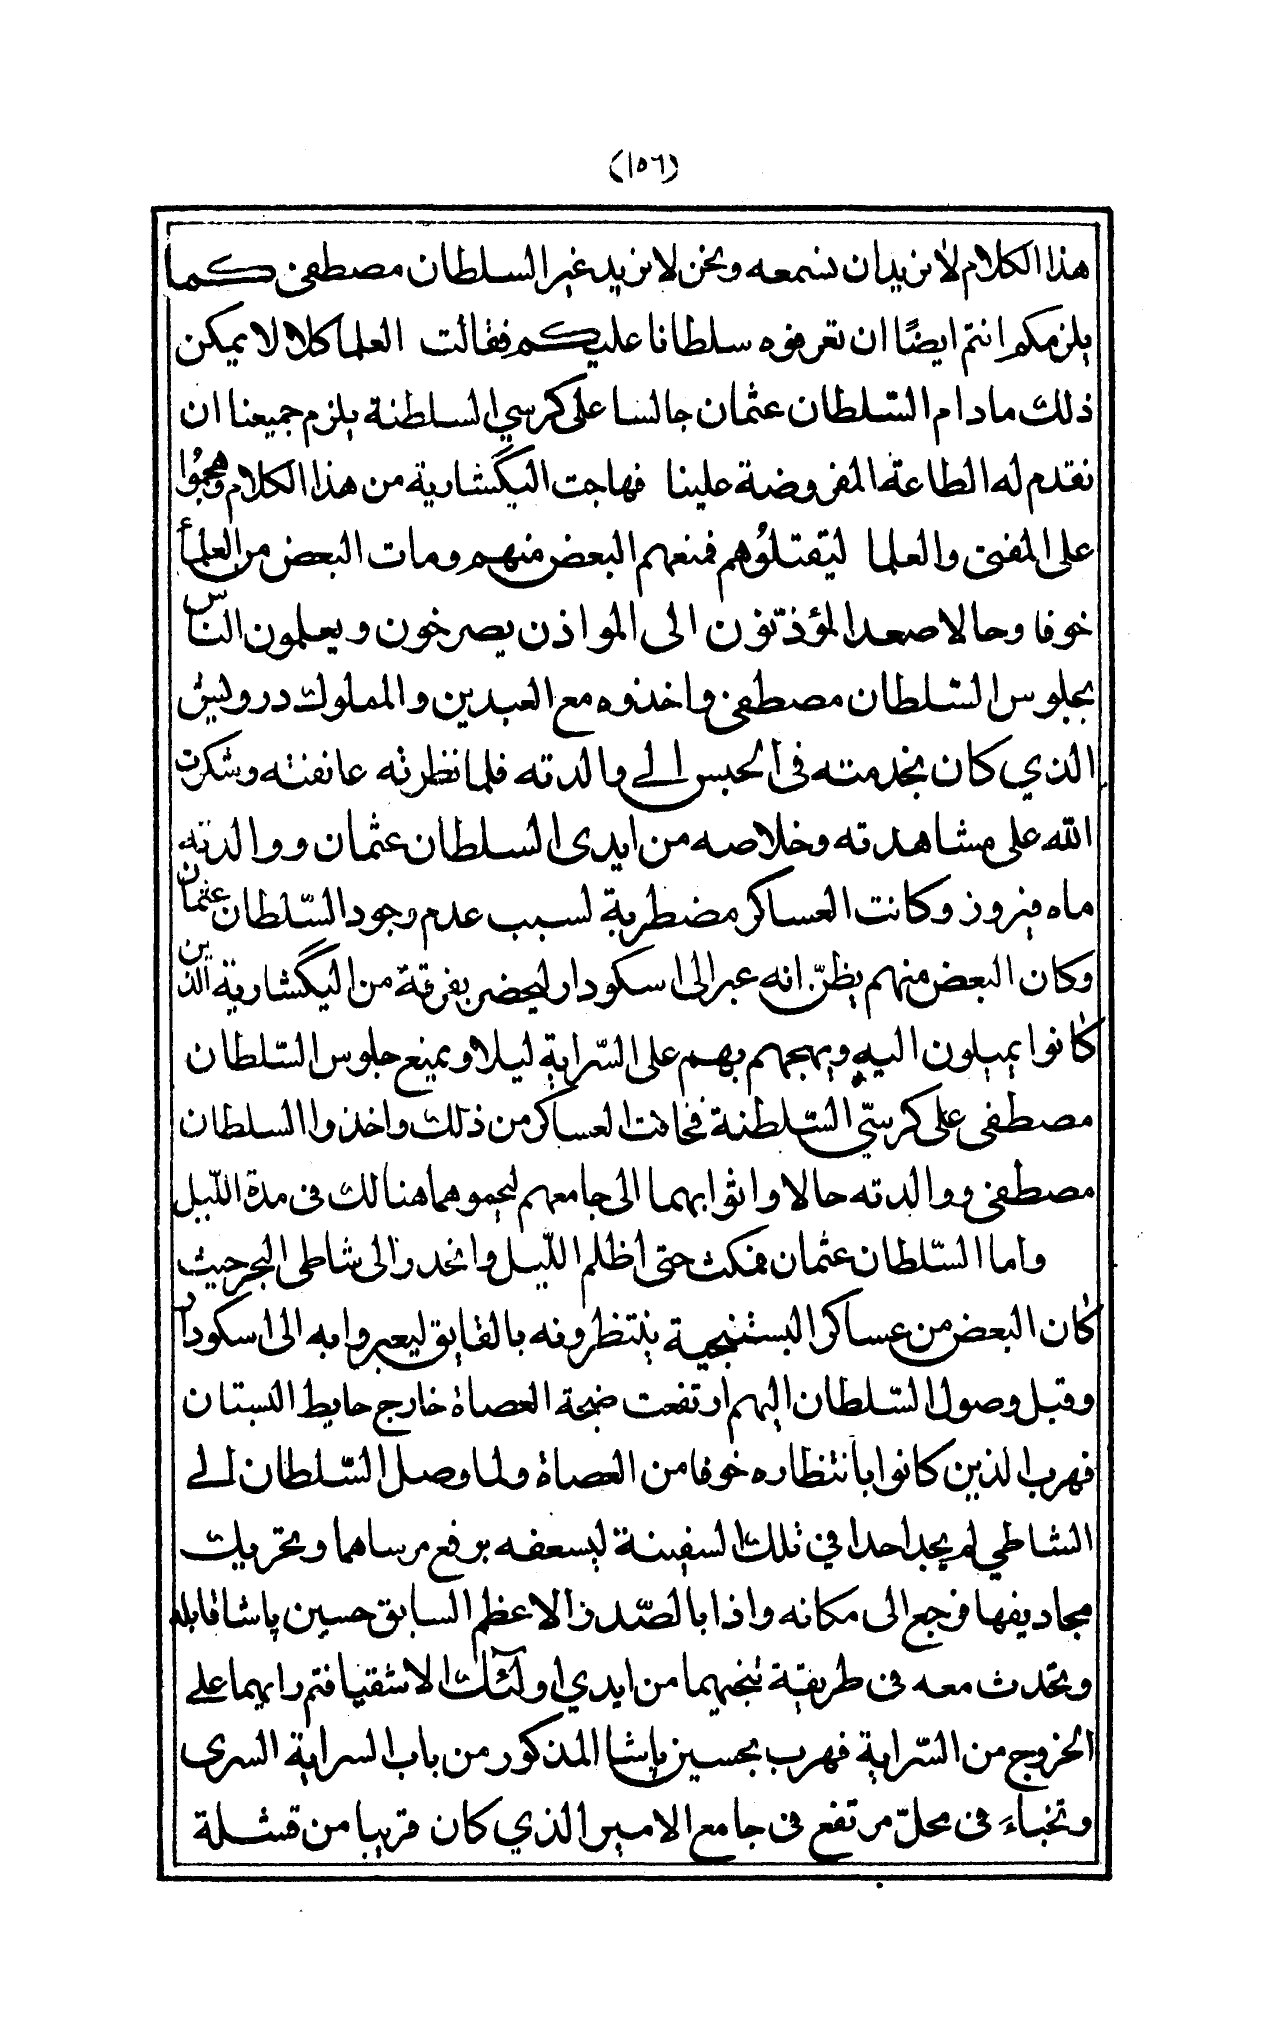 (١٥٦)
هذا الكلام لا نريد ان نسمعه ونحن لا نريد غير السلطان مصطفى كما
يلزمكم انتم ايضًا ان تعرفوه سلطانا عليكم فقالت العلما كلا لا يمكن
ذلك ما دام السّلطان عثمان جالسا على كرسي السلطنة يلزم جميعنا ان
نقدم له الطاعة المفروضة علينا فهاجت اليكشارية من هذا الكلام وهجموا
على المفتى والعلما ليقتلُوهم فمنعهم البعض منهم ومات البعض من العلمأ
خوفا وحالا صعد المؤذّنون الى المواذن يصرخون ويعلمون الناس
بجلوس السّلطان مصطفى واخذوه مع العبدين والمملوك درويش
الذي كان بخدمته فى الحبس الى والدته فلما نظرته عانقته وشكرت
الله على مشاهدته وخلاصه من ايدى السلطان عثمان ووالدته
ماه فيروز وكانت العساكر مضطربة لسبب عدم وجود السّلطان عثمان
وكان البعض منهم يظنّ انه عبر الى اسكودار ليحضر بفرقة من اليكشارية الذين
كانوا يميلون اليه ويهجهم بهم على السّراية ليلا ويمنع جلوس السّلطان
مصطفى على كرسّي السّلطنة فخافت العساكر من ذلك واخذوا السلطان
مصطفى ووالدته حالا واتوا بهما الى جامعهم ليحموهما هنالك فى مدة اللّيل
واما السّلطان عثمان فمكث حتى أظلم اللّيل وانحدر الى شاطى البحر حيث
كان البعض من عساكر البستنجية ينتظرونه بالقايق ليعبروا به الى اسكودار
وقبل وصول السّلطان اليهم ارتفعت ضجة العصاة خارج حايط البستان
فهرب الذين كانوا بأنتظاره خوفا من العصاة ولما وصل السّلطان الى
الشاطي لم يجد احدا في تلك السفينة ليسعفه برفع مرساها وتحريك
مجاديفها فرجع الى مكانه واذا بالصّدر الاعظم السابق حسين پاشا قابله
وتحدث معه فى طريقة تنجيهما من ايدي اولئك الاشقيا فتم رايهما على
الخروج من السّراية فهرب بحسين پاشا المذكور من باب السراية السرى
وتخباء فى محلّ مرتفع فى جامع الامير الذي كان قريبا من قشلة